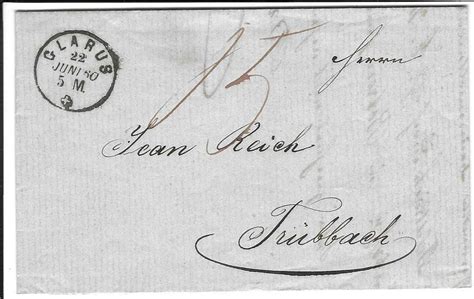 GLARUS
22
JUNI 60
5 M.
15
Herrn
Jean Reich
Trübbach